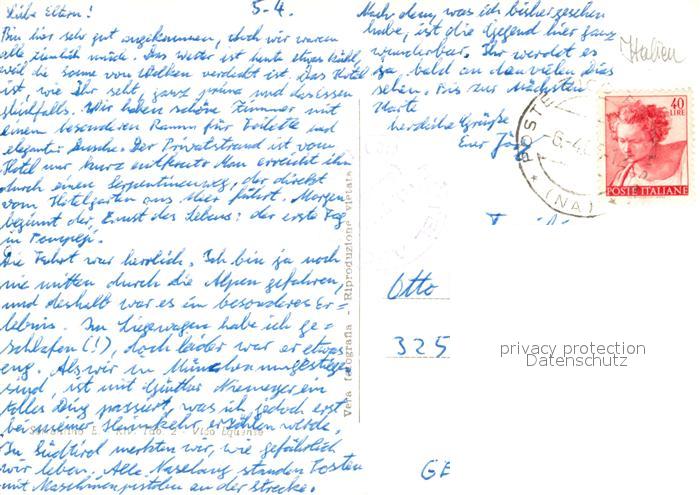 Liebe Eltern! 5-4.
Bin hier sehr gut angekommen, doch wir waren
alle ziemlich müde. Das Wetter ist heute etwas kühl,
weil die Sonne von Wolken verdeckt ist. Das Hotel
ist, wie Ihr seht, ganz prima und das Essen
gleichfalls. Wir haben schöne Zimmer mit
einem besonderen Raum für Toilette und
eleganter Dusche. Der Privatstrand ist vom
Hotel nur kurz entfernt. Man erreicht ihn
durch einen Serpentinenweg, der direkt
vom Hotelgarten ans Meer führt. Morgen
beginnt der Ernst des Lebens: der erste Tag
in Pompeji.
Die Fahrt war herrlich. Ich bin ja noch
nie mitten durch die Alpen gefahren,
und deshalb war es ein besonderes Er=
lebnis. Im Liegewagen habe ich ge=
schlafen (!), doch leider war er etwas
eng. Als wir in München umgestiegen
sind, ist mit Günther Niemeyer ein
tolles Ding passiert, was ich jedoch erst
bei meiner Heimkehr erzählen werde.
In Südtirol merkten wir, wie gefährlich
wir leben. Alle Naselang standen Posten
mit Maschinenpistolen an der Strecke.
Nach dem, was ich bisher gesehen
habe, ist die Gegend hier ganz
wunderbar. Ihr werdet es
ja bald an den vielen Dias
sehen. Bis zur nächsten
Karte
herzliche Grüße
Euer
Italien
40
LIRE
POSTE ITALIANE
POSTE
6-4
(NA)
Vera Fotografia - Riproduzione vietata
Vico Equense
Otto
325
privacy protection
Datenschutz
GE